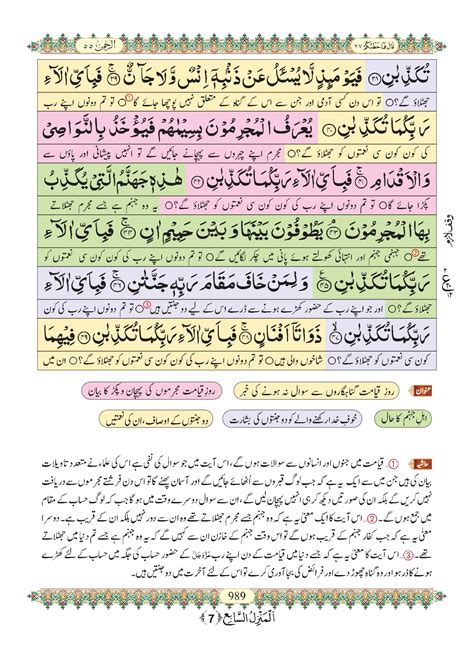 قَالَ فَمَا خَطْبُكُمْ ٢٧
اَلرَّحْمٰن ٥٥
تُكَذِّبٰنِ ۝۳۸ فَيَوْمَىِٕذٍ لَّا يُسْـَٔلُ عَنْ ذَنْۢبِهٖۤ اِنْسٌ وَّ لَا جَآنٌّ ۝۳۹ فَبِاَيِّ اٰلَآءِ
جھٹلاؤ گے؟ ○ تو اس دن کسی آدمی اور جن سے اس کے گناہ کے متعلق نہیں پوچھا جائے گا ① ○ تو تم دونوں اپنے رب
رَبِّكُمَا تُكَذِّبٰنِ ۝۴۰ يُعْرَفُ الْمُجْرِمُوْنَ بِسِيْمٰهُمْ فَيُؤْخَذُ بِالنَّوَاصِيْ
کی کون کون سی نعمتوں کو جھٹلاؤ گے؟ ○ مجرم اپنے چہروں سے پہچانے جائیں گے تو انہیں پیشانی اور پاؤں سے
وَ الْاَقْدَامِ ۝۴۱ فَبِاَيِّ اٰلَآءِ رَبِّكُمَا تُكَذِّبٰنِ ۝۴۲ هٰذِهٖ جَهَنَّمُ الَّتِيْ يُكَذِّبُ
پکڑا جائے گا ○ تو تم دونوں اپنے رب کی کون کون سی نعمتوں کو جھٹلاؤ گے؟ ○ یہ وہ جہنم ہے جسے مجرم
بِهَا الْمُجْرِمُوْنَ ۝۴۳ يَطُوْفُوْنَ بَيْنَهَا وَ بَيْنَ حَمِيْمٍ اٰنٍ ۝۴۴ فَبِاَيِّ اٰلَآءِ
جھٹلاتے تھے ② ○ جہنمی جہنم اور انتہائی کھولتے ہوئے پانی میں چکر لگائیں گے ○ تو تم دونوں اپنے رب کی کون کون سی نعمتوں کو
رَبِّكُمَا تُكَذِّبٰنِ ۝۴۵ وَ لِمَنْ خَافَ مَقَامَ رَبِّهٖ جَنَّتٰنِ ۝۴۶ فَبِاَيِّ اٰلَآءِ
جھٹلاؤ گے؟ ○ اور جو اپنے رب کے حضور کھڑے ہونے سے ڈرے اس کے لیے دو جنتیں ہیں ③ ○ تو تم دونوں اپنے رب کی
رَبِّكُمَا تُكَذِّبٰنِ ۝۴۷ ذَوَاتَاۤ اَفْنَانٍ ۝۴۸ فَبِاَيِّ اٰلَآءِ رَبِّكُمَا تُكَذِّبٰنِ ۝۴۹ فِيْهِمَا
کون کون سی نعمتوں کو جھٹلاؤ گے؟ ○ شاخوں والی ہیں ○ تو تم دونوں اپنے رب کی کون کون سی نعمتوں کو جھٹلاؤ گے؟ ○ ان میں
عنوان
روزِ قیامت گناہگاروں سے سوال نہ ہونے کی خبر
روزِ قیامت مجرموں کی پہچان و پکڑ کا بیان
اہلِ جہنم کا حال
خوفِ خدا رکھنے والے کو دو جنتوں کی بشارت
دو جنتوں کے اوصاف، ان کی نعمتیں
حاشیہ
①۔ قیامت میں جنوں اور انسانوں سے سوالات ہوں گے، اس آیت میں جو سوال کی نفی ہے اس کی علماء نے متعدد تاویلات
بیان کی ہیں جن میں سے ایک یہ ہے کہ جب لوگ قبروں سے اٹھائے جائیں گے اور آسمان پھٹے گا تو اس دن فرشتے مجرموں سے دریافت
نہیں کریں گے بلکہ ان کی صورتیں دیکھ کر ہی انہیں پہچان لیں گے، اور ان سے سوال دوسرے وقت میں ہو گا جب کہ لوگ حساب کے مقام
میں جمع ہوں گے۔ ②۔ اس آیت کا ایک معنی یہ ہے کہ وہ جہنم جسے مجرم جھٹلاتے تھے وہ ان سے دور نہیں بلکہ ان کے قریب ہے۔ دوسرا
معنی یہ ہے کہ جب کفار جہنم کے قریب ہوں گے تو اس وقت جہنم کے خازن ان سے کہیں گے یہ وہ جہنم ہے جسے تم دنیا میں جھٹلاتے
تھے۔ ③۔ اس آیت کا معنی یہ ہے کہ جسے دنیا میں قیامت کے دن اپنے رب عَزَّوَجَلَّ کے حضور حساب کی جگہ میں حساب کے لئے کھڑے
ہونے کا ڈر ہو اور وہ گناہ چھوڑ دے اور فرائض کی بجا آوری کرے تو اس کے لئے آخرت میں دو جنتیں ہیں۔
989
اَلْمَنْزِلُ السَّابِع ﴿7﴾